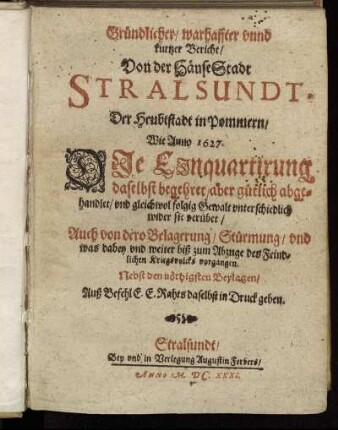 Gründlicher/ warhaffter vnnd
kurtzer Bericht/
Von der HänseStadt
STRALSUNDT.
Der Heubtstadt in Pommern/
Wie Anno 1627.
DJe Einquartirung
daselbst begehret/ aber gütlich abge-
handlet/ vnd gleichwol folgig Gewalt vnterschiedlich
wider sie verübet/
Auch von dero Belagerung/ Stürmung/ vnd
was dabey vnd weiter biß zum Abzuge des Feind-
lichen Kriegsvolcks vorgangen.
Nebst den nöthigsten Beylagen/
Auß Befehl E. E. Rahts daselbst in Druck geben.
Stralsundt/
Bey vnd in Verlegung Augustin Ferbers/
ANNO M. DC. XXXI.